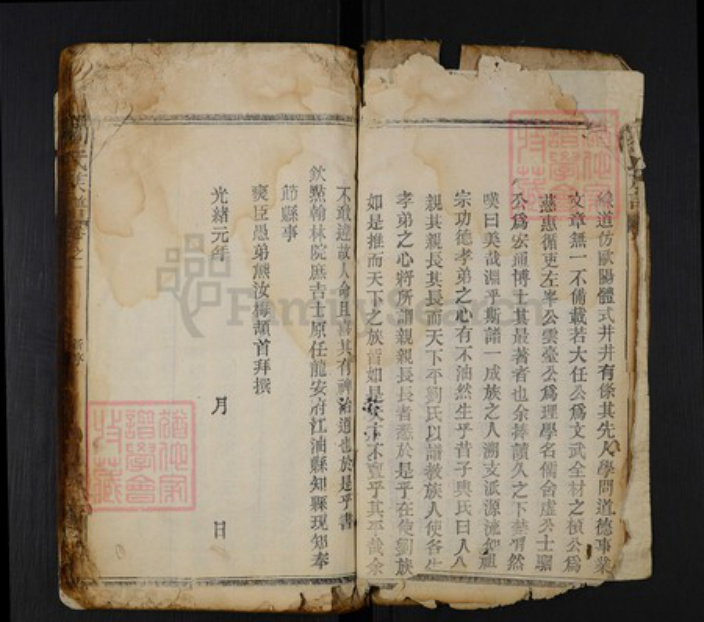 線道仿歐陽體式井井有條其先人學問道德事業
文章無一不備載若大任公爲文武全材之楨公爲
慈惠循吏左峯公雲臺公爲理學名儒舍虛公士驤
公爲宏通博士其最著者也余捧讀久之下喟然
嘆曰美哉淵乎斯譜一成族之人溯支派源流知祖
宗功德孝弟之心有不油然生乎昔子輿氏曰人人
親其親長其長而天下平劉氏以譜教族人使各生
孝弟之心將所謂親親長長者悉於是乎在使劉族
如是推而天下之族皆如是不亶乎其平哉余
不敢違故人命且喜其有裨治道也於是乎書
欽點翰林院庶吉士原任龍安府江油縣知縣現知奉
節縣事
寅臣愚弟熊汝梅頓首拜撰
光緒元年 月 日
族譜卷之一
FamilySearch
譜學會
特藏
譜學會
特藏